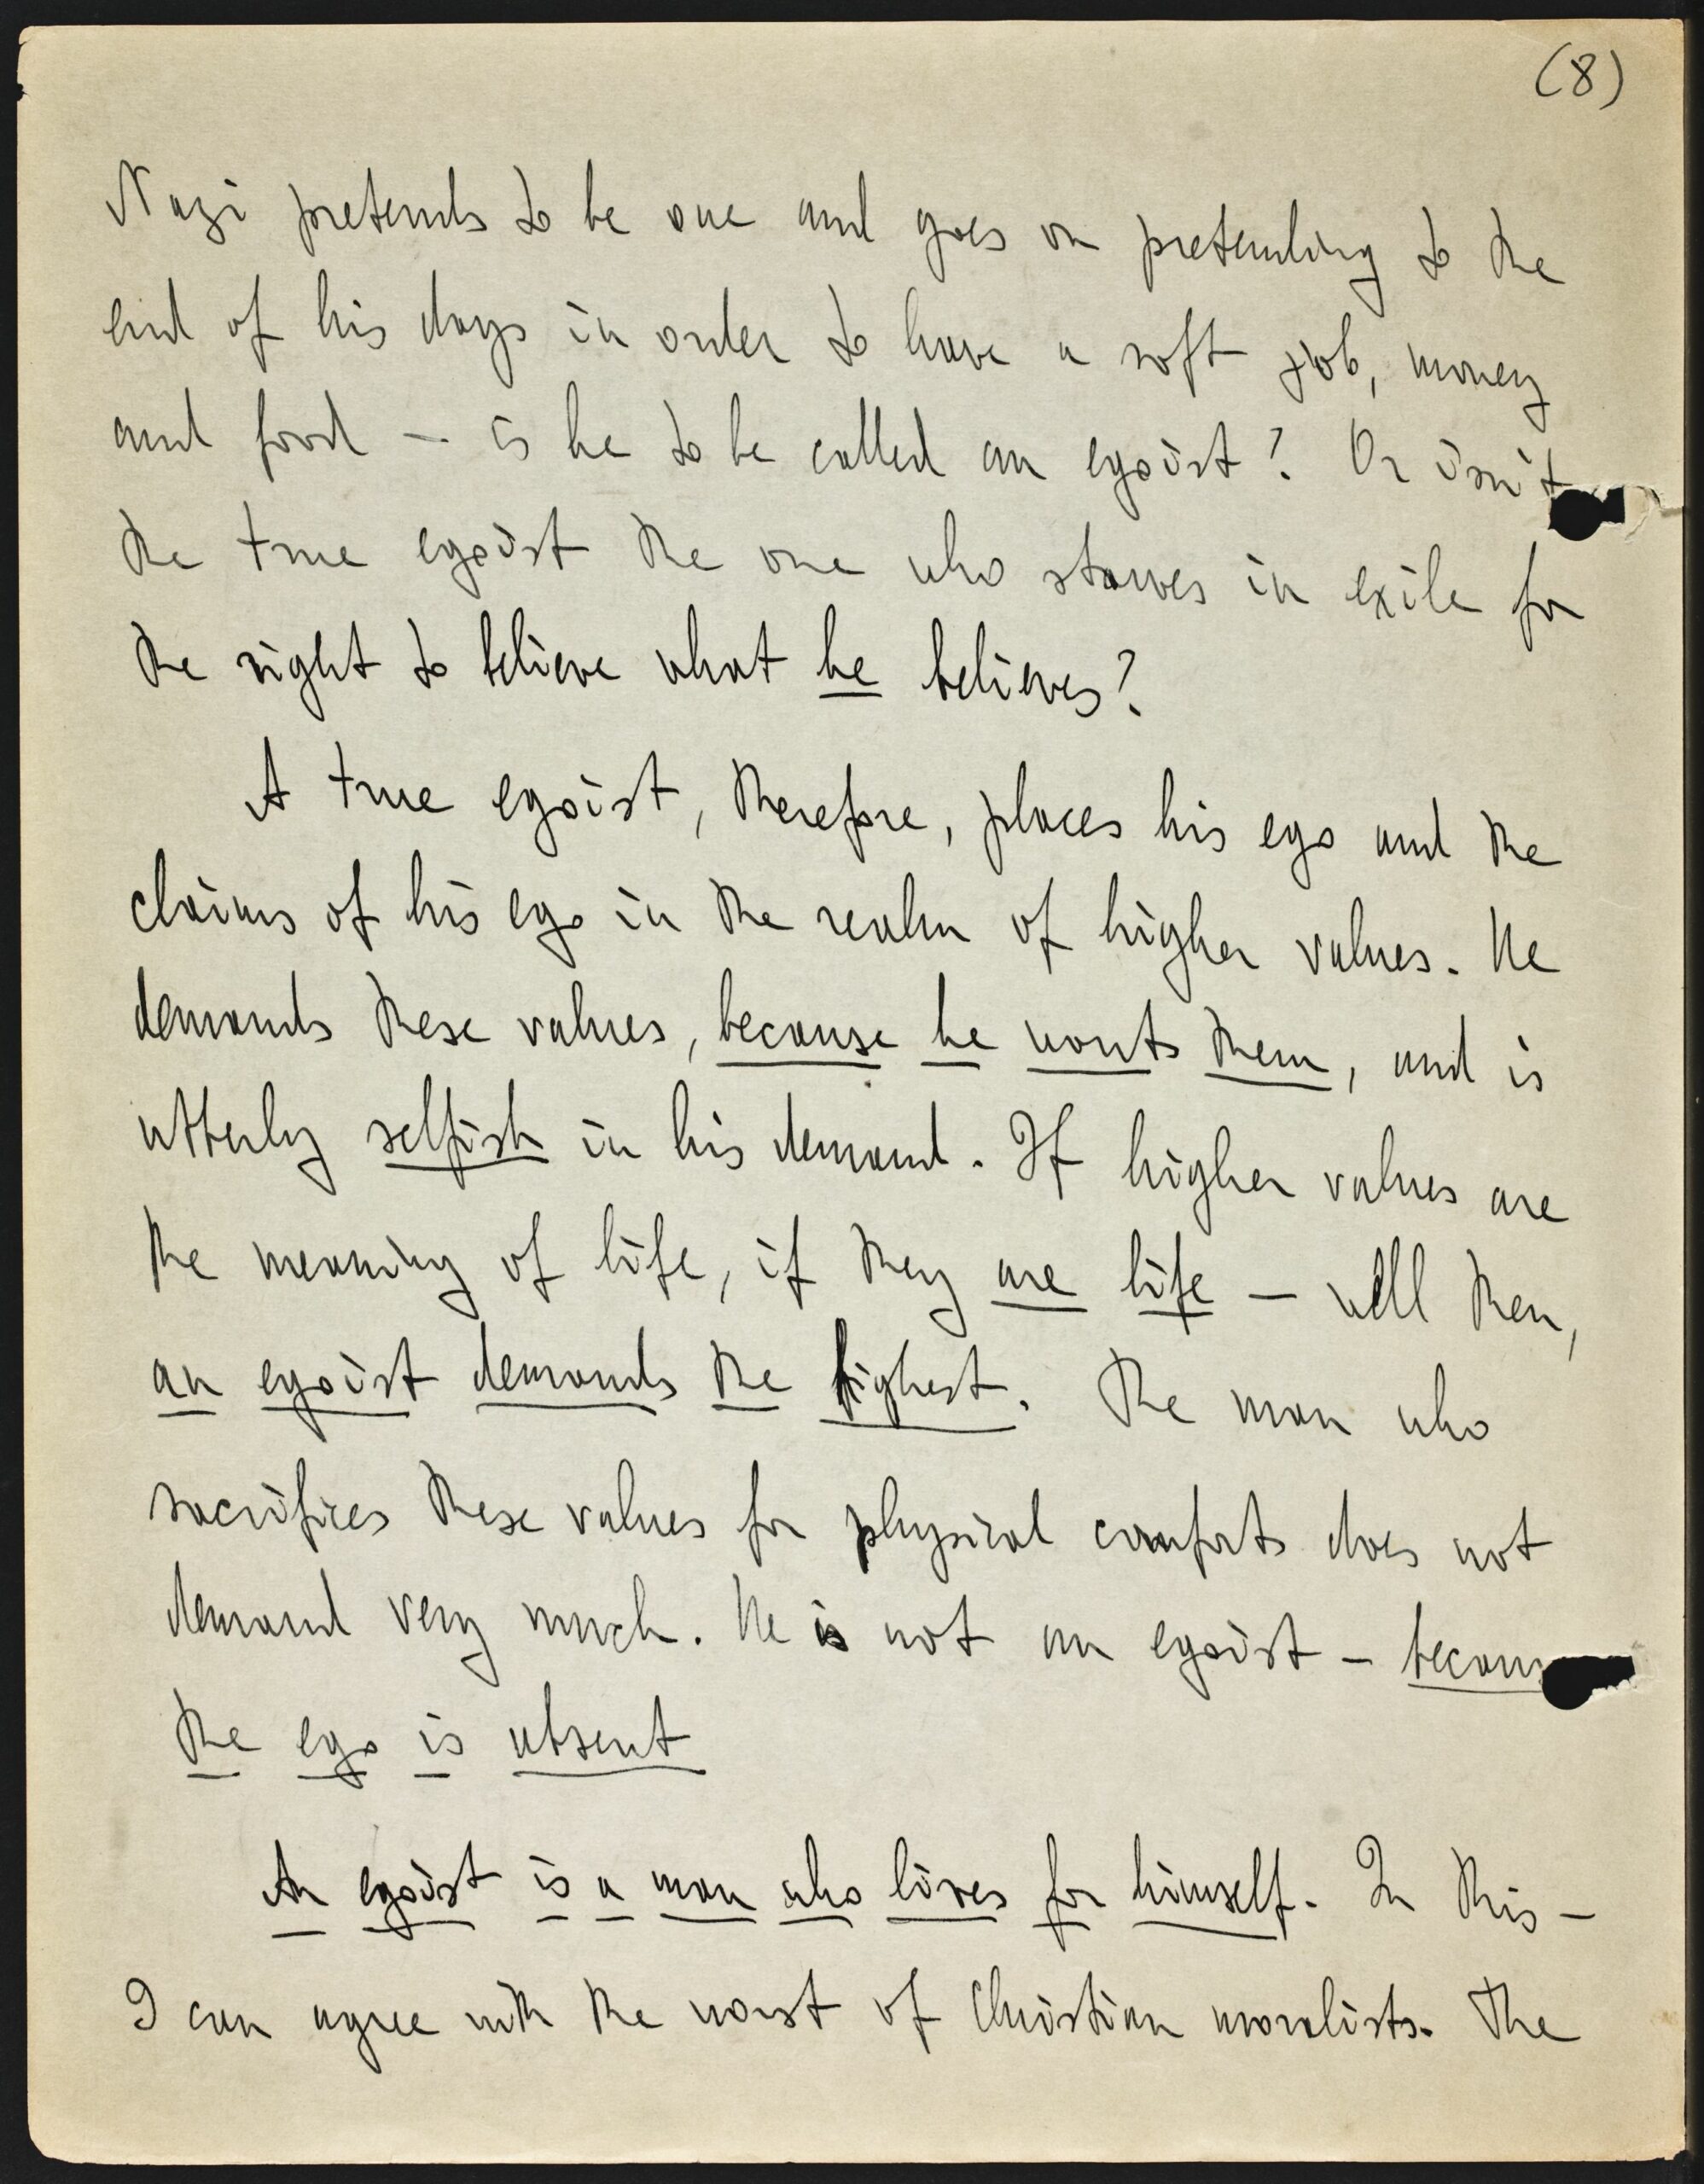 (8)
Nazi pretends to be one and goes on pretending to the
end of his days in order to have a soft job, money
and food — is he to be called an egoist? Or isn't
the true egoist the one who starves in exile for
the right to believe what he believes?
A true egoist, therefore, places his ego and the
claims of his ego in the realm of higher values. He
demands these values, because he wants them, and is
utterly selfish in his demand. If higher values are
the meaning of life, if they are life — well then,
an egoist demands the highest. The man who
sacrifices these values for physical comforts does not
demand very much. He is not an egoist — becau
the ego is absent
An egoist is a man who lives for himself. In this —
I can agree with the worst of Christian moralists. The